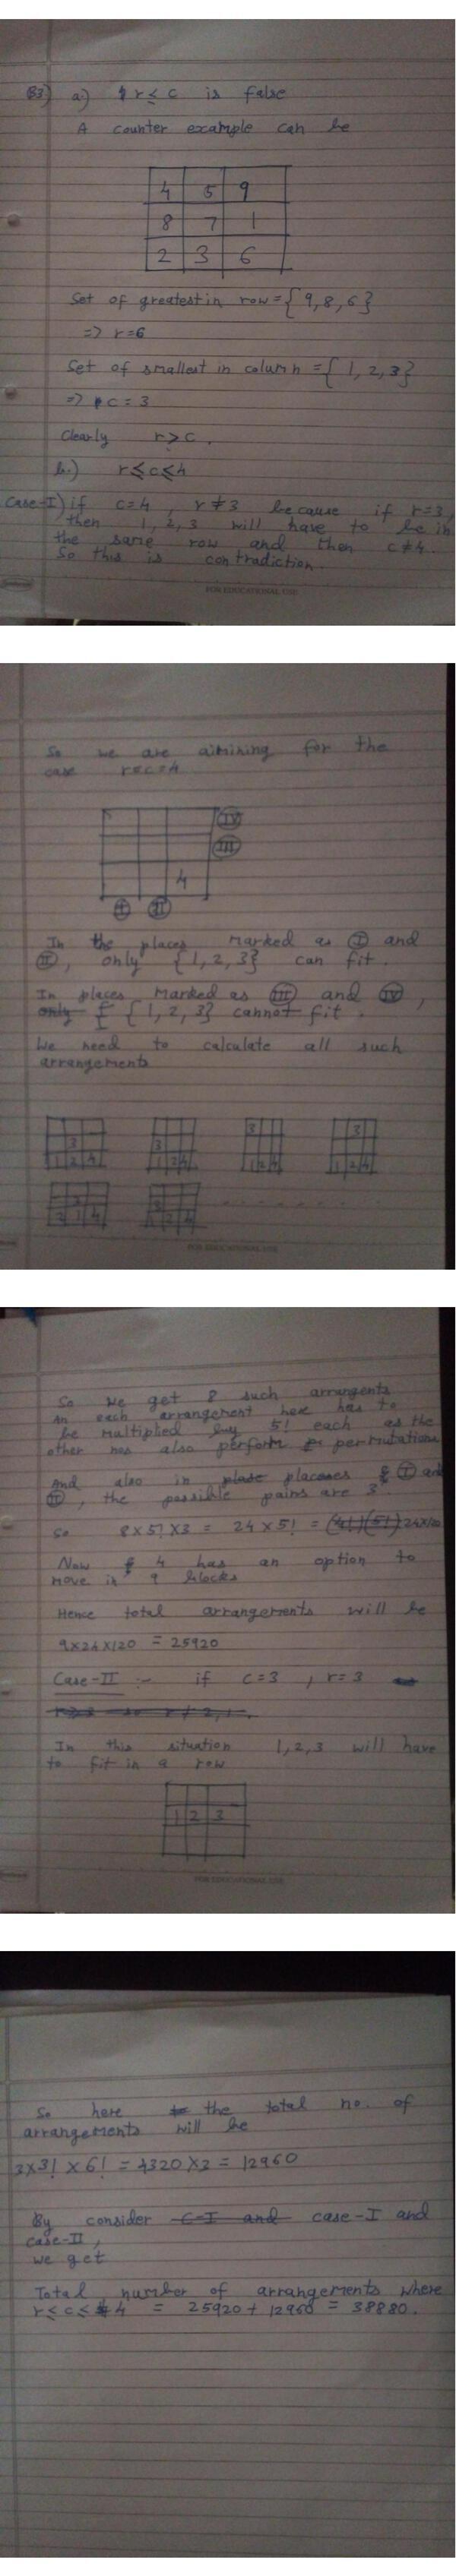 B3) a.) r ≤ c is false
A counter example can be
4 5 9
8 7 1
2 3 6
Set of greatest in row = { 9, 8, 6 }
=> r=6
Set of smallest in column = { 1, 2, 3 }
=> c = 3
Clearly r > c .
b.) r ≤ c ≤ 4
Case-I) if c=4 , r ≠ 3 because if r=3,
then 1, 2, 3 will have to be in
the same row and then c ≠ 4.
So this is contradiction.
FOR EDUCATIONAL USE
So we are aimining for the
case r=c=4
IV
III
4
I II
In the places marked as I and
II, only {1, 2, 3} can fit .
In places marked as III and IV,
only { 1, 2, 3} cannot fit .
We need to calculate all such
arrangements
3 3
3 3
1 2 4 1 2 4 1 2 4 1 2 4
3 3
2 1 4 1 2 4 . . . . . . . .
FOR EDUCATIONAL USE
So we get 8 such arrangents
An each arrangement here has to
be multiplied by 5! each as the
other nos also perform permutations
And also in place placoses I and
II, the possible pairs are 3
So 8 x 5! x 3 = 24 x 5! = (4!)(5!) 24x120
Now 4 has an option to
move in 9 blocks
Hence total arrangements will be
9x24x120 = 25920
Case-II :- if c=3 , r=3
In this situation 1,2,3 will have
to fit in a row
1 2 3
FOR EDUCATIONAL USE
So here the total no. of
arrangements will be
3x3! x 6! = 4320 x 3 = 12960
By consider C-I and case-I and
case-II,
we get
Total number of arrangements where
r ≤ c ≤ 4 = 25920 + 12960 = 38880.